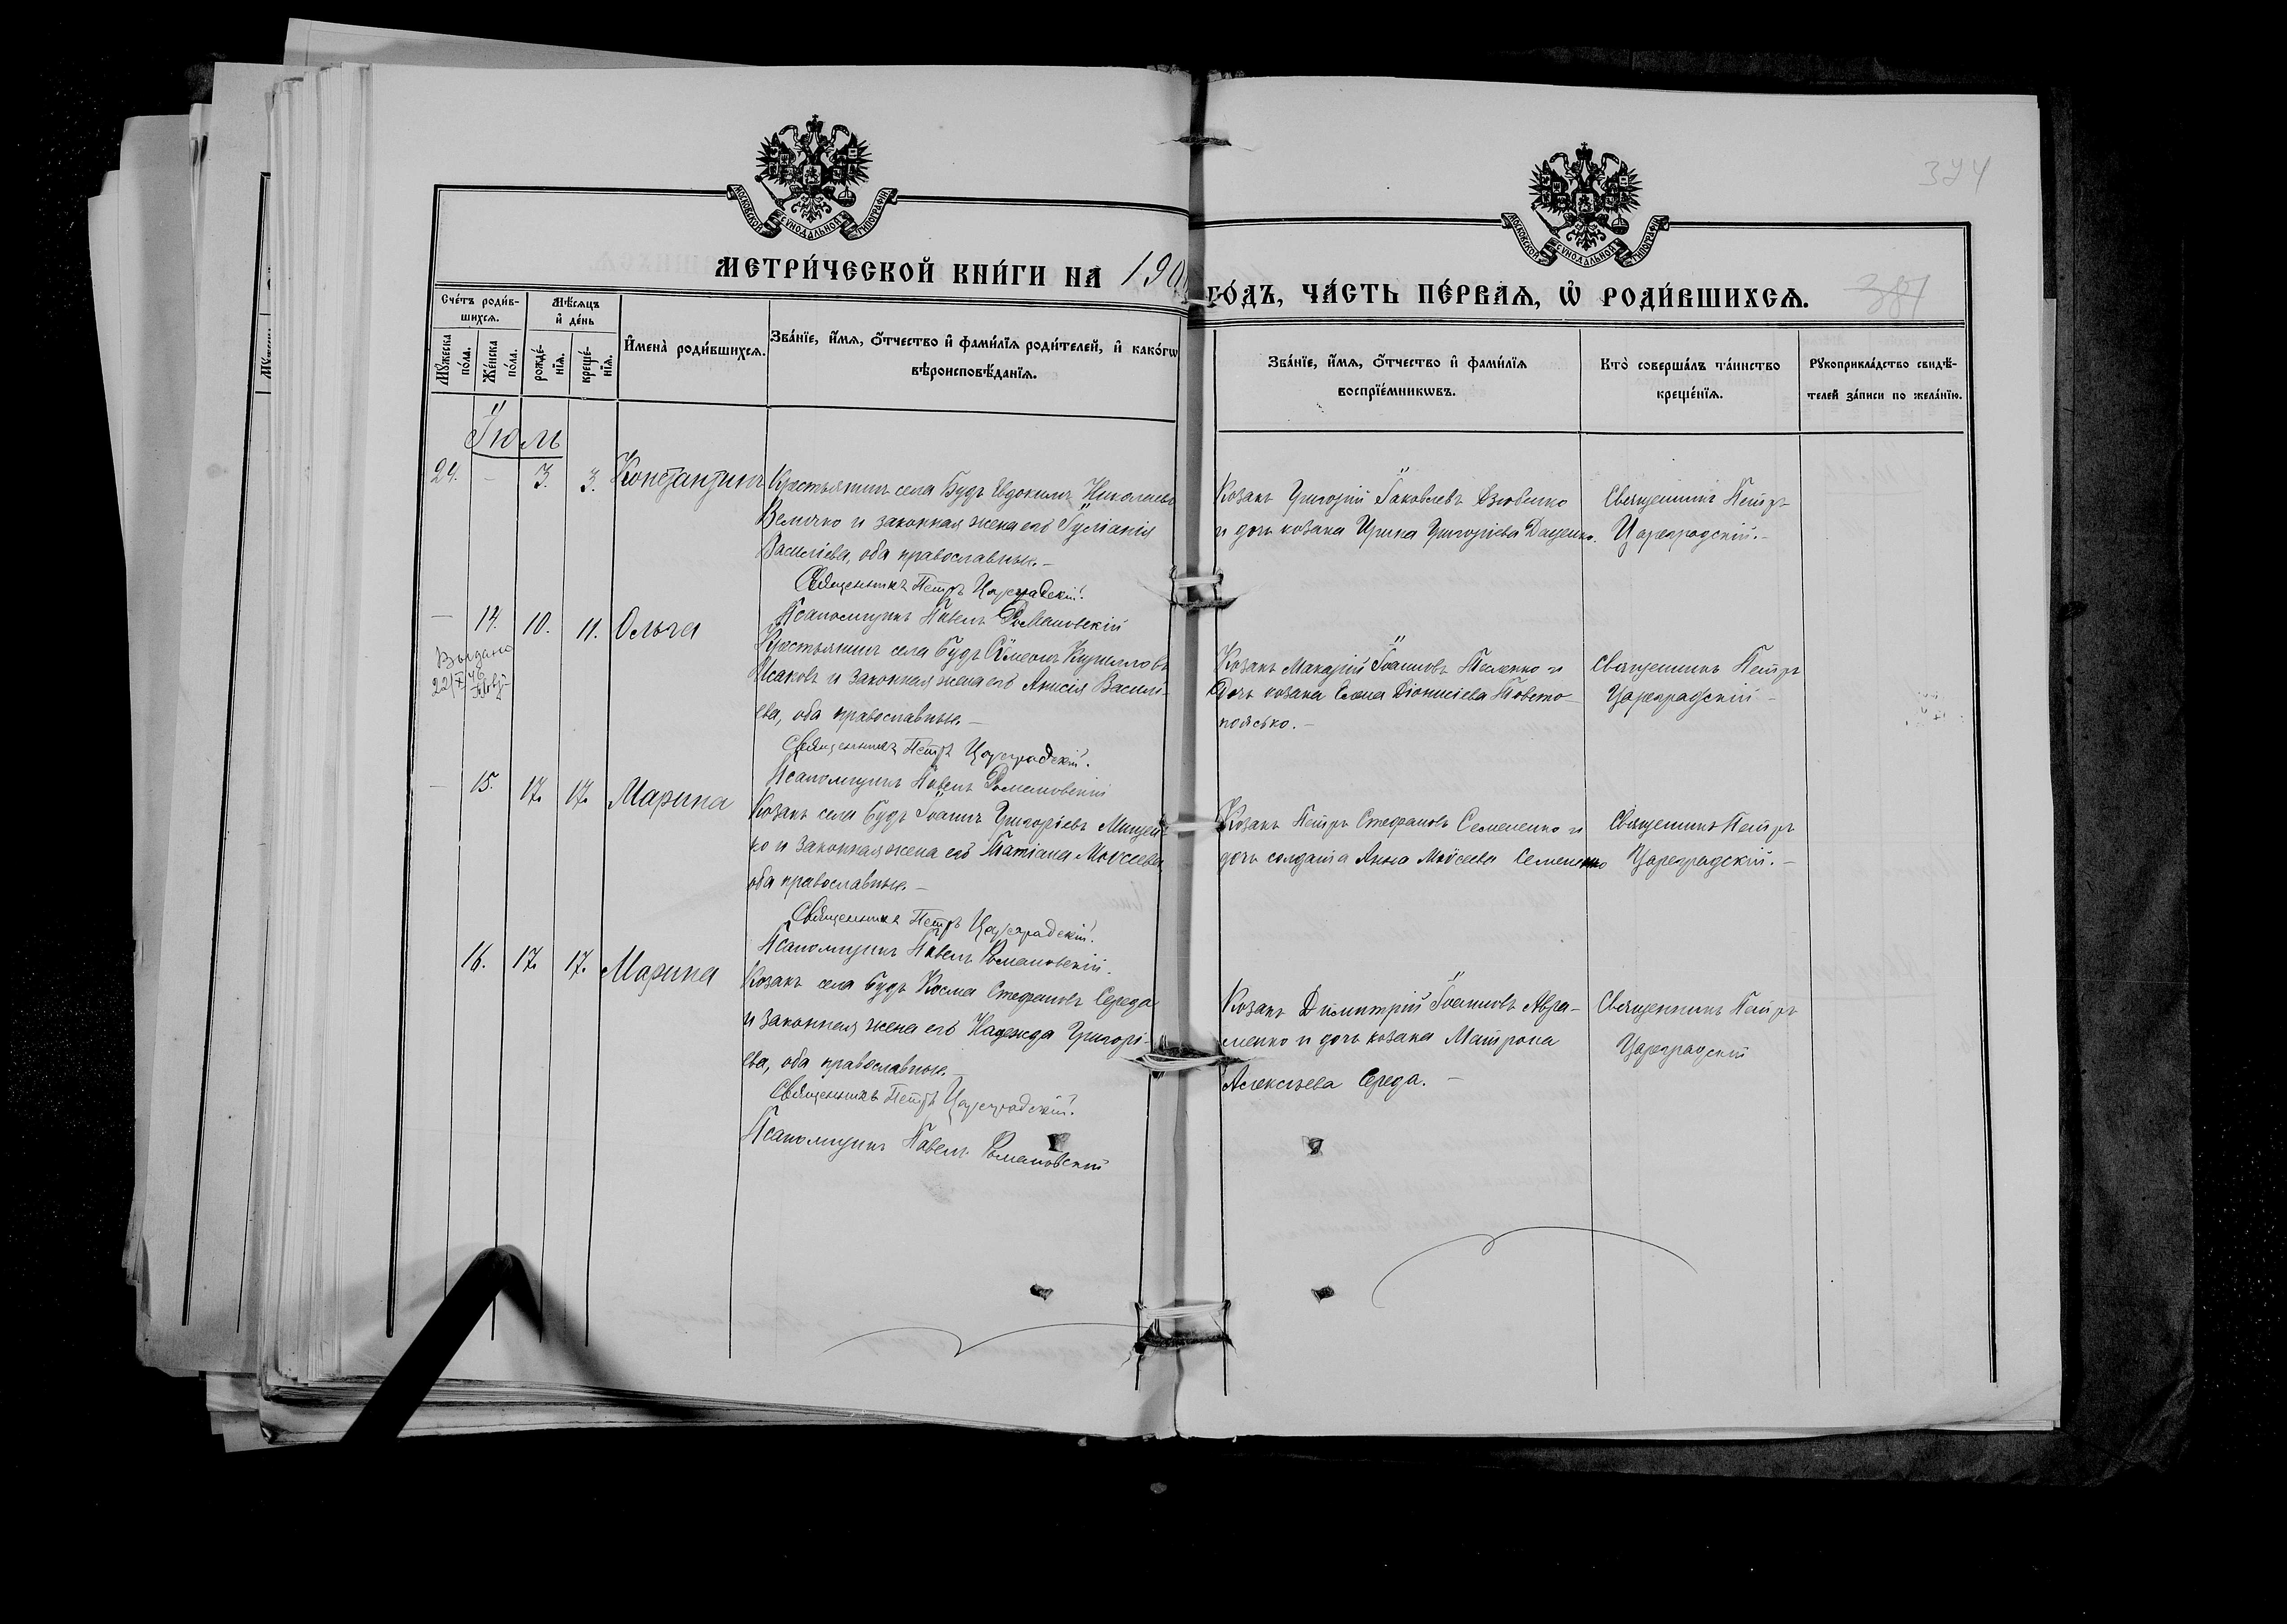 324
МОСКОВСКОЙ СѴНОДАЛЬНОЙ ТИПОГРАФІИ
МОСКОВСКОЙ СѴНОДАЛЬНОЙ ТИПОГРАФІИ
МЕТРИ́ЧЕСКОЙ КНИ́ГИ НА 190
ГО́ДЪ, ЧА́СТЬ ПЕ́РВАѦ, Ѡ҆ РОДИ́ВШИХСѦ.
381
Сче́тъ роди́в-
шихсѧ.
Мѣ́сѧцъ
и҆ де́нь
Мꙋ́жеска
по́ла.
Же́нска
по́ла.
рожде́-
нїѧ.
креще́-
нїѧ.
И҆мена̀ роди́вшихсѧ.
Зва́нїе, и҆́мѧ, ѻ҆́тчество и҆ фами́лїѧ роди́телей, и҆ како́гѡ
вѣроисповѣ́данїѧ.
Зва́нїе, и҆́мѧ, ѻ҆́тчество и҆ фами́лїѧ
воспрїе́мникѡвъ.
Кто̀ соверша́лъ та́инство
креще́нїѧ.
Рꙋкоприкла́дство свидѣ́-
телей за́писи по жела́нїю.
Іюль
24. - 3. 3. Константинъ
Крестьянинъ села Будъ Евдокимъ Николаевъ
Величко и законная жена его Іуліанія
Василіева, оба православные. -
Священникъ Петръ Цареградскій.
Псаломщикъ Павелъ Романовскій
Козакъ Григорій Іаковлевъ
и дочь козака Ирина Григоріева Даценко.
Священникъ Петръ
Цареградскій. -
- 14. 10. 11. Ольга
Выдано
Крестьянинъ села Будъ Сѵмеонъ Кирилловъ
Исаковъ и законная жена его Анисія Васили-
ева, оба православные. -
Священникъ Петръ Цареградскій.
Псаломщикъ Павелъ Романовскій
Козакъ Макарій Іоанновъ Тесленко и
дочь козака Елена Діонисіева Товсто-
Священникъ Петръ
Цареградскій -
- 15. 17. 17. Марина
Козакъ села Будъ Іоаннъ Григоріевъ Мищен-
ко и законная жена его Татіана Моѵсеева
оба православные. -
Священникъ Петръ Цареградскій.
Псаломщикъ Павелъ Романовскій.
Козакъ Петръ Стефановъ Семененко и
дочь солдата Анна Моѵсеева Семененко
Священникъ Петръ
Цареградскій. -
16. 17. 17. Марина
Козакъ села Будъ Косма Стефановъ Середа
и законная жена его Надежда Григорі-
ева, оба православные. -
Священникъ Петръ Цареградскій.
Псаломщикъ Павелъ Романовскій
Козакъ Димитрій Іоанновъ Авра-
менко и дочь козака Матрона
Алексѣева Середа. -
Священникъ Петръ
Цареградскій